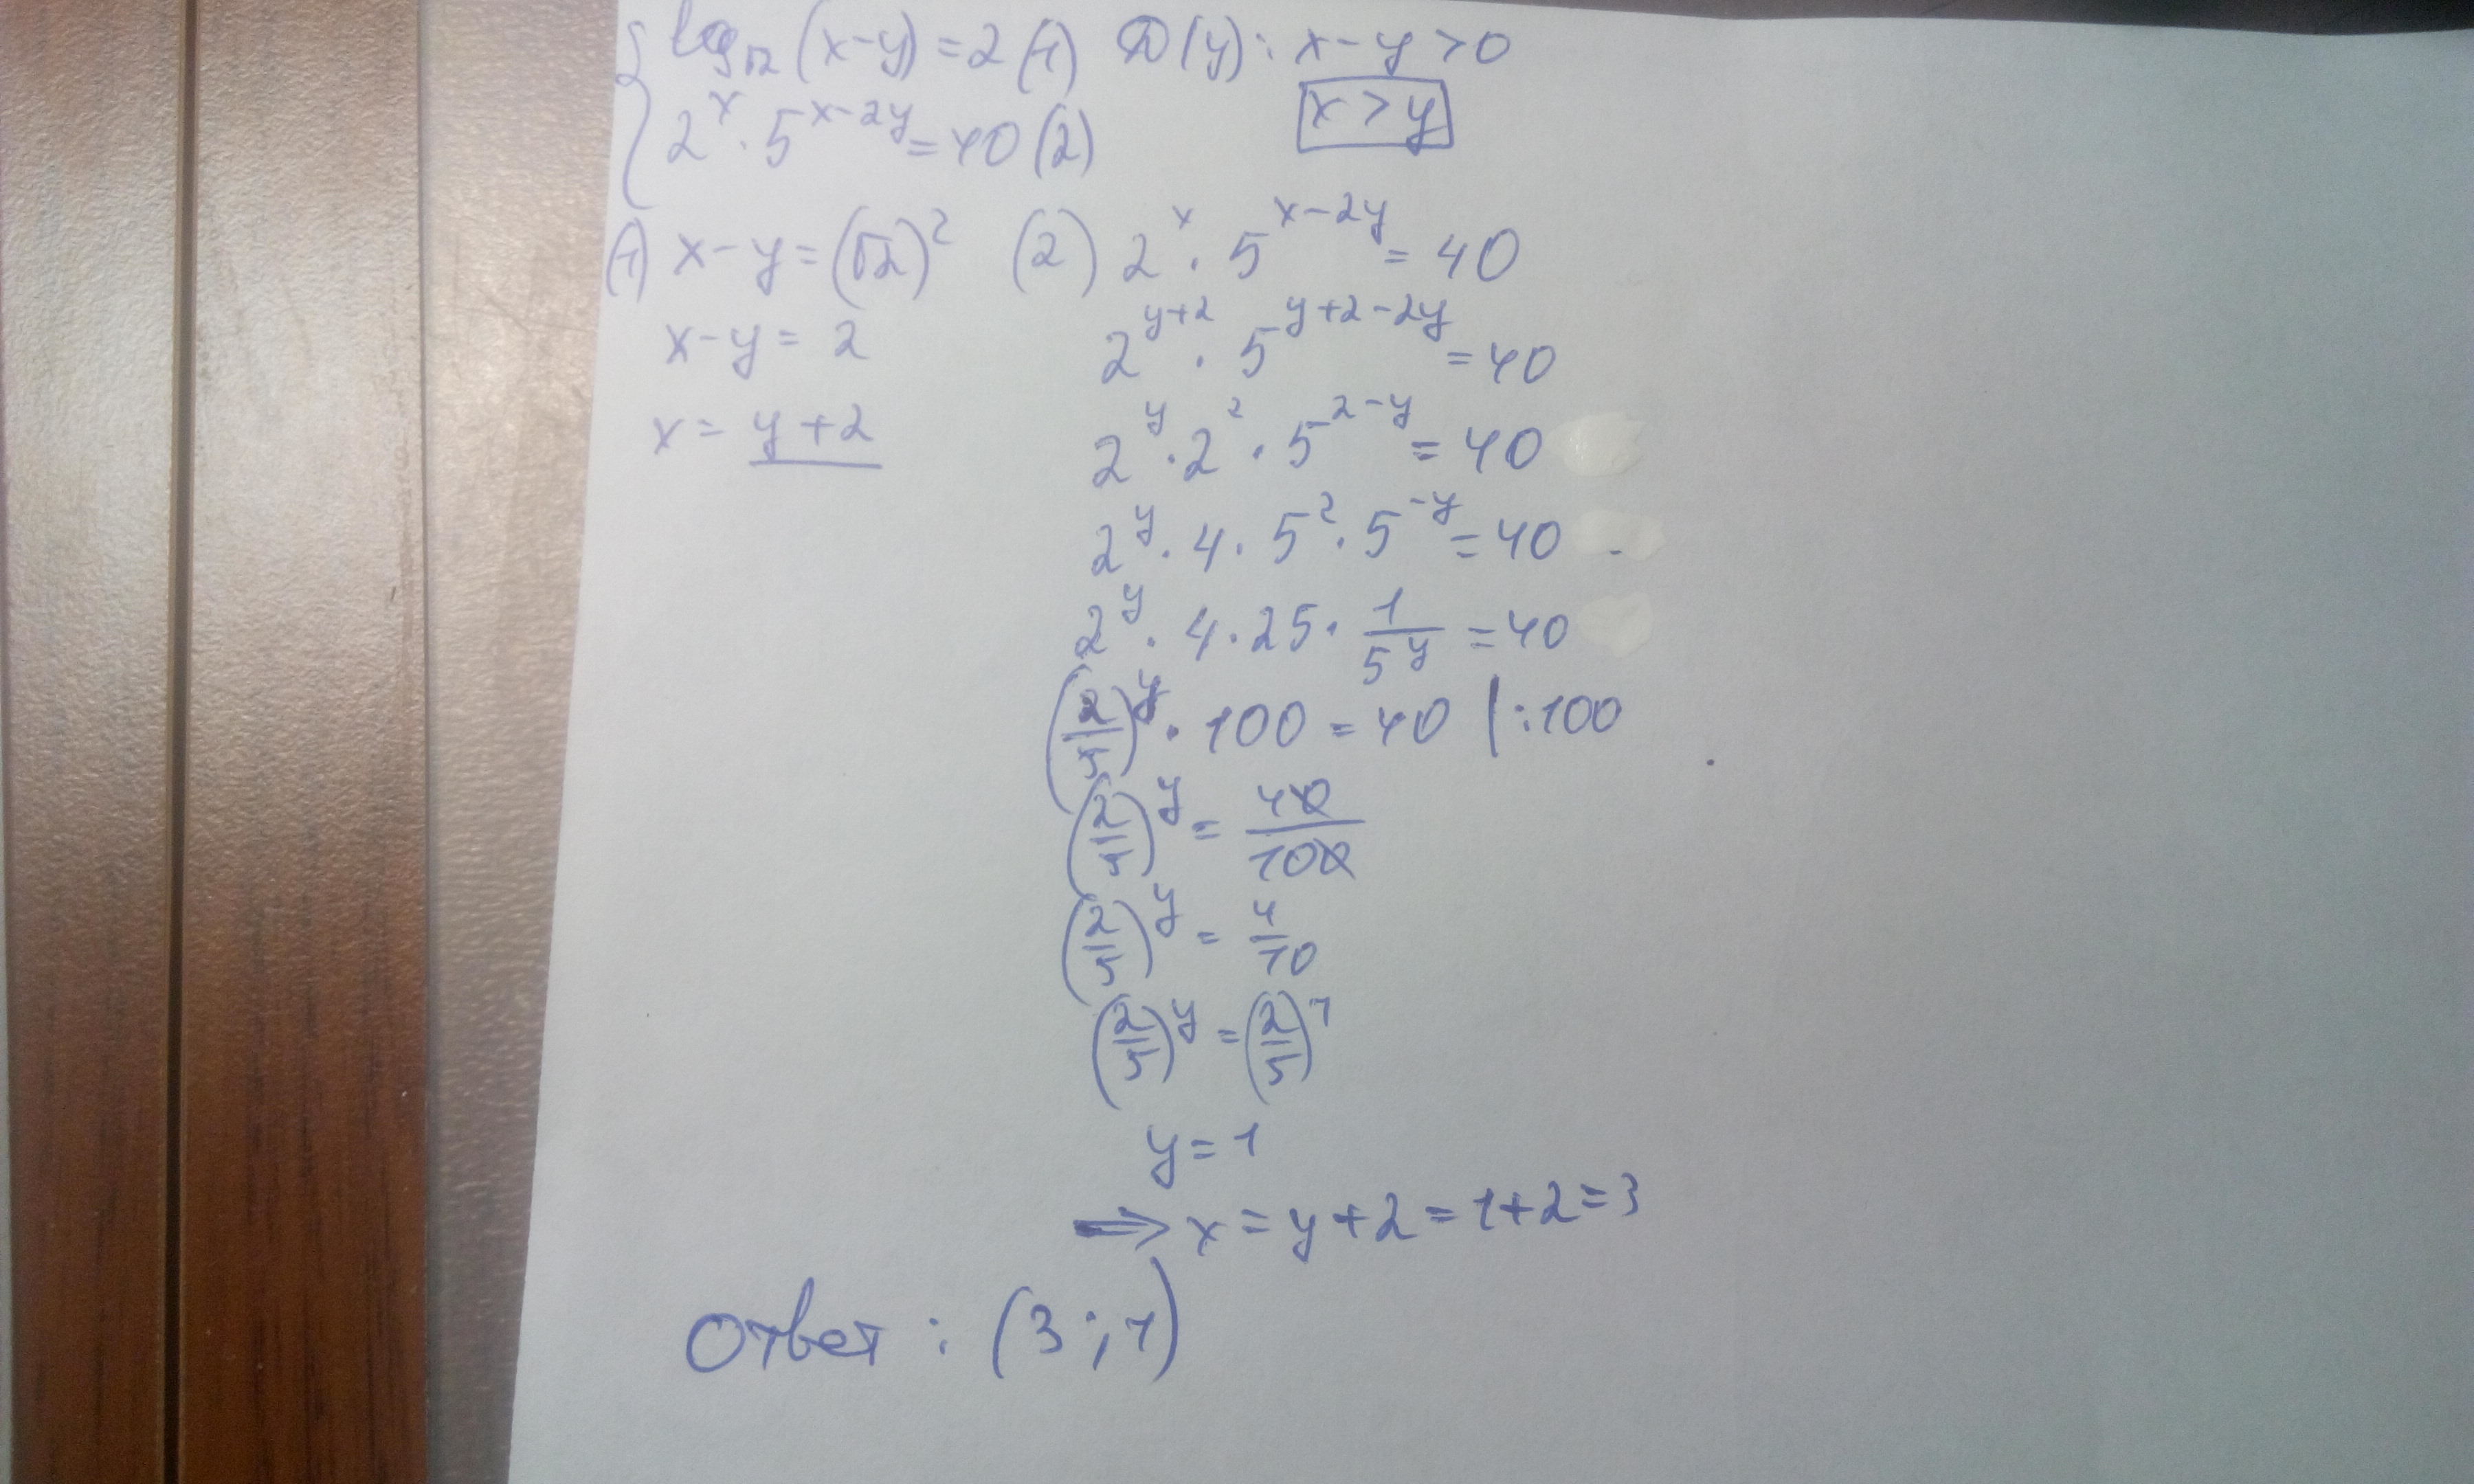 { log√2 (x-y) = 2 (1) D(y): x-y > 0
2^x · 5^(x-2y) = 40 (2) x > y
(1) x-y = (√2)^2 (2) 2^x · 5^(x-2y) = 40
x-y = 2 2^(y+2) · 5^(y+2-2y) = 40
x = y+2 2^y · 2^2 · 5^(2-y) = 40
2^y · 4 · 5^2 · 5^(-y) = 40
2^y · 4 · 25 · 1/5^y = 40
(2/5)^y · 100 = 40 | :100
(2/5)^y = 40/100
(2/5)^y = 4/10
(2/5)^y = (2/5)^1
y = 1
⇒ x = y+2 = 1+2 = 3
Ответ : (3 ; 1)